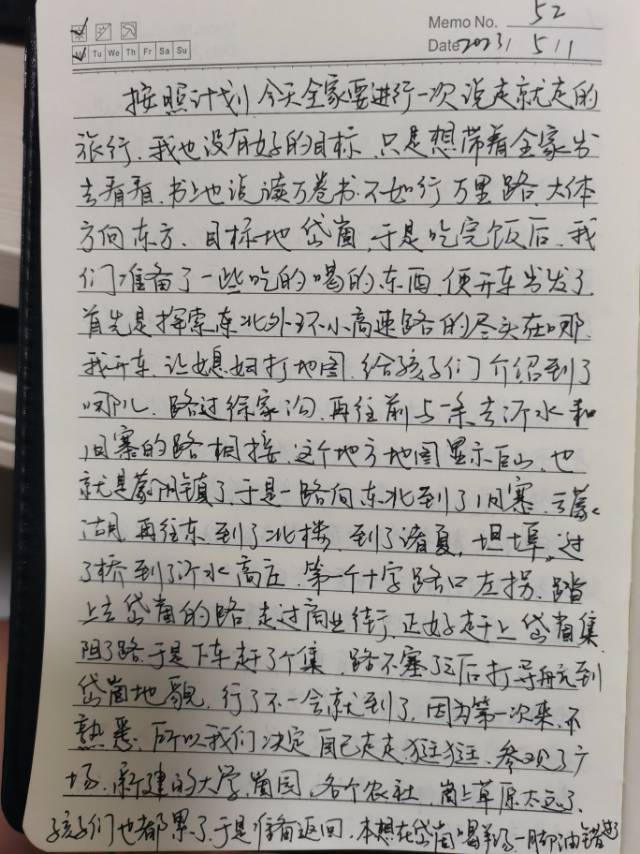 Memo No. 52
Tu We Th Fr Sa Su
Date 2023/ 5/1
按照计划,今天全家要进行一次说走就走的
旅行,我也没有好的目标,只是想带着全家出
去看看,书上也说读万卷书不如行万里路,大体
方向东方,目标地岱崮,于是吃完饭后,我
们准备了一些吃的喝的东西,便开车出发了,
首先是探索东北外环小高速路的尽头在哪,
我开车,让媳妇打地图,给孩子们介绍到了
哪儿,路过徐家沟,再往前与一条去沂水和
旧寨的路相接,这个地方地图显示巨山,也
就是蒙阴镇了,于是一路向东北到了旧寨,云蒙
湖,再往东到了北楼,到了诸夏,坦埠,过
了桥到了沂水高庄,第一个十字路口左拐,踏
上去岱崮的路,走过商业街,正好赶上岱崮集
阻了路,于是下车赶了个集,路不塞了之后打导航到
岱崮地貌,行了不一会就到了,因为第一次来,不
熟悉,所以我们决定自己走走逛逛,参观了广
场,新建的大学,崮园,各个农社,崮上草原太远了,
孩子们也都累了,于是准备返回,本想在岱崮喝羊汤,一脚油错过